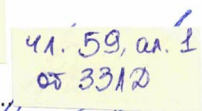 чл. 59, ал. 1
от ЗЗЛД